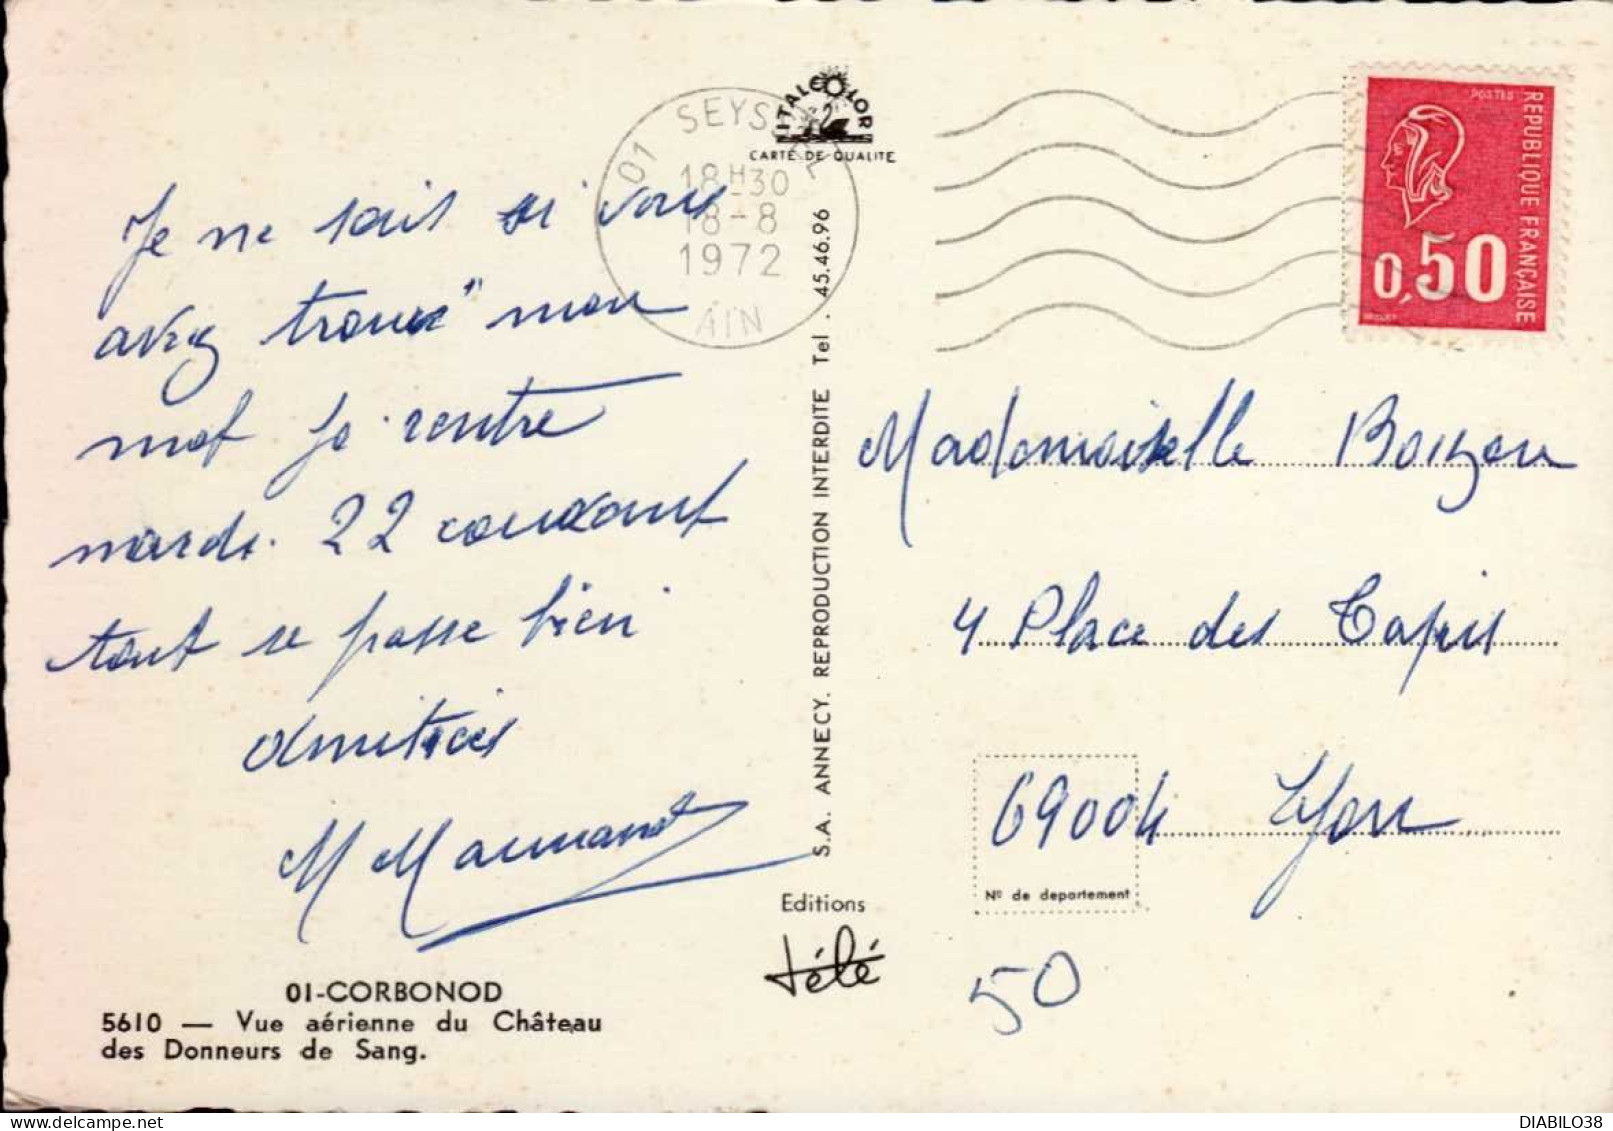 Je ne sait si vous
avez trouvé mon
mot Je rentre
mardi. 22 courant
tout se passe bien
Amitiés
M
01-CORBONOD
5610 — Vue aérienne du Château
des Donneurs de Sang.
ITALCOLOR
CARTE DE QUALITE
01 SEYSSEL
18H30
18-8
1972
AIN
S.A. ANNECY. REPRODUCTION INTERDITE Tel . 45.46.96
Editions
télé
POSTES
REPUBLIQUE FRANÇAISE
0,50
Mademoiselle
4 Place des Tapis
69004 Lyon
Nº de departement
50
DIABILO38